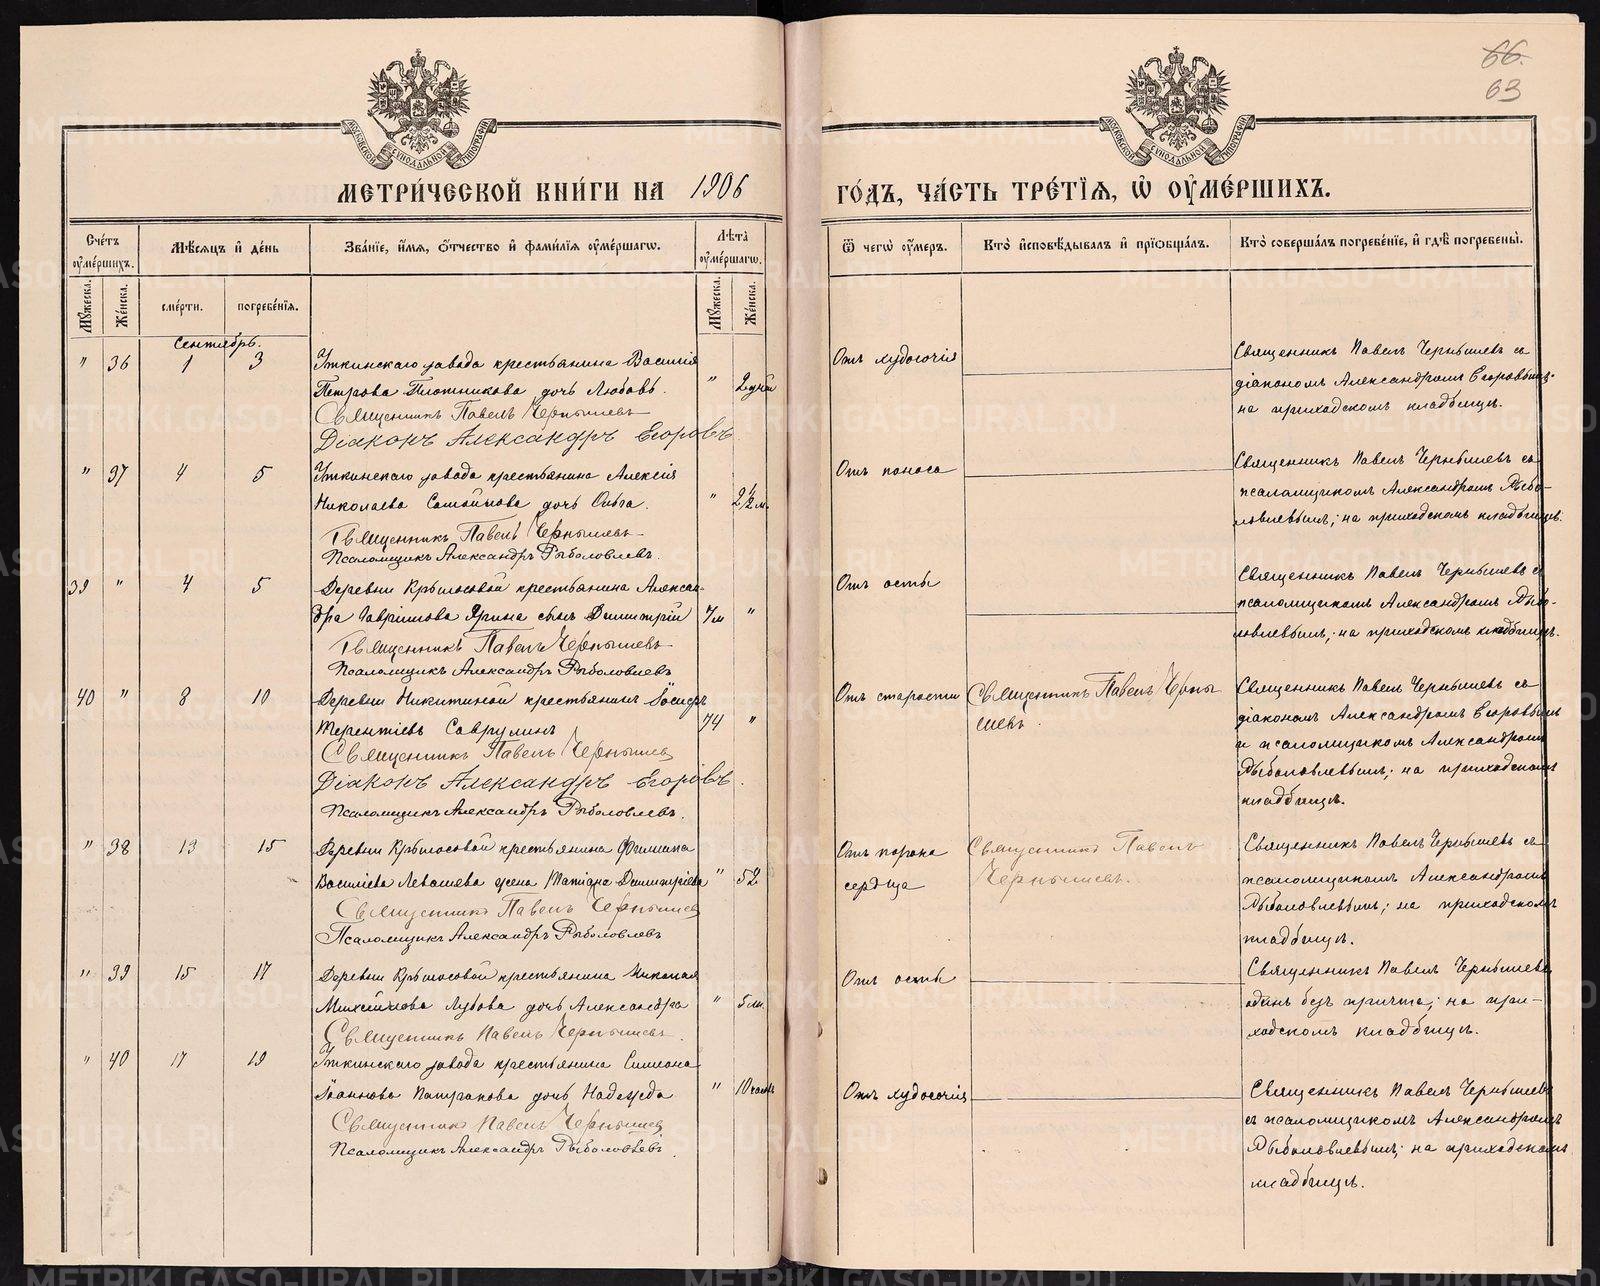 66.
63
МОСКОВСКОЙ СУНОДАЛЬНОЙ ТИПОГРАФІИ
МОСКОВСКОЙ СУНОДАЛЬНОЙ ТИПОГРАФІИ
МЕТРИ́ЧЕСКОЙ КНИ́ГИ НА 1906
ГО́ДЪ, ЧА́СТЬ ТРЕ́ТІѦ, Ѡ҆ ОУ҆МЕ́РШИХЪ.
Сче́тъ оу҆ме́ршихъ.
Мѣ́сяцъ и҆ де́нь
Зва́ніе, и҆́мя, ѻ҆́тчество и҆ фами́лїя оу҆ме́ршагѡ.
Лѣ́та оу҆ме́ршагѡ.
Ѿ чегѡ̀ оу҆́меръ.
Кто̀ и҆сповѣ́дывалъ и҆ прїѡбща́лъ.
Кто̀ соверша́лъ погребе́нїе, и҆ гдѣ̀ погребены̀.
Мꙋ́жеска.
Же́нска.
сме́рти.
погребе́нїя.
Мꙋ́жеска.
Же́нска.
Сентябрь.
" 36 1 3 Уткинскаго завода крестьянина Василія
Петрова Плотникова дочь Любовь. " 2 дней
Священникъ Павелъ Чернышевъ
Діаконъ Александръ Егоровъ
Отъ худосочія
Священникъ Павелъ Чернышевъ съ
діакономъ Александромъ Егоровымъ;
на приходскомъ кладбищѣ.
" 37 4 5 Уткинскаго завода крестьянина Алексія
Николаева дочь Ольга. " 2 1/2 м.
Священникъ Павелъ Чернышевъ
Псаломщикъ Александръ Рыболовлевъ.
Отъ поноса
Священникъ Павелъ Чернышевъ съ
псаломщикомъ Александромъ Рыбо-
ловлевымъ; на приходскомъ кладбищѣ.
39 " 4 5 Деревни Крылосовой крестьянина Алексан-
дра Гавріилова Ярина сынъ Димитрій 7 м "
Священникъ Павелъ Чернышевъ
Псаломщикъ Александръ Рыболовлевъ
Отъ оспы
Священникъ Павелъ Чернышевъ съ
псаломщикомъ Александромъ Рыбо-
ловлевымъ; на приходскомъ кладбищѣ.
40 " 8 10 Деревни Никитиной крестьянинъ Іосифъ
Терентіевъ Саврулинъ 74 "
Священникъ Павелъ Чернышев
Діаконъ Александръ Егоровъ.
Псаломщикъ Александръ Рыболовлевъ.
Отъ старости
Священникъ Павелъ Черны
шевъ.
Священникъ Павелъ Чернышевъ съ
діакономъ Александромъ Егоровымъ
и псаломщикомъ Александромъ
Рыболовлевымъ; на приходскомъ
кладбищѣ.
" 38 13 15 Деревни Крылосовой крестьянина Филиппа
Василіева Левашева жена Татіана Димитріева " 52
Священникъ Павелъ Чернышев
Псаломщикъ Александръ Рыболовлевъ
Отъ порока
сердца
Священникъ Павелъ
Чернышевъ.
Священникъ Павелъ Чернышевъ съ
псаломщикомъ Александромъ
Рыболовлевымъ; на приходскомъ
кладбищѣ.
" 39 15 17 Деревни Крылосовой крестьянина Николая
Михаилова дочь Александра " 5 м.
Священникъ Павелъ Чернышевъ.
Отъ оспы
Священникъ Павелъ Чернышевъ
одинъ безъ причта; на при-
ходскомъ кладбищѣ.
" 40 17 19 Уткинскаго завода крестьянина Симеона
Іоаннова дочь Надежда " 10 часовъ
Священникъ Павелъ Чернышев
Псаломщикъ Александръ Рыболовлевъ.
Отъ худосочія
Священникъ Павелъ Чернышевъ
съ псаломщикомъ Александромъ
Рыболовлевымъ; на приходскомъ
кладбищѣ.
METRIKI.GASO-URAL.RU